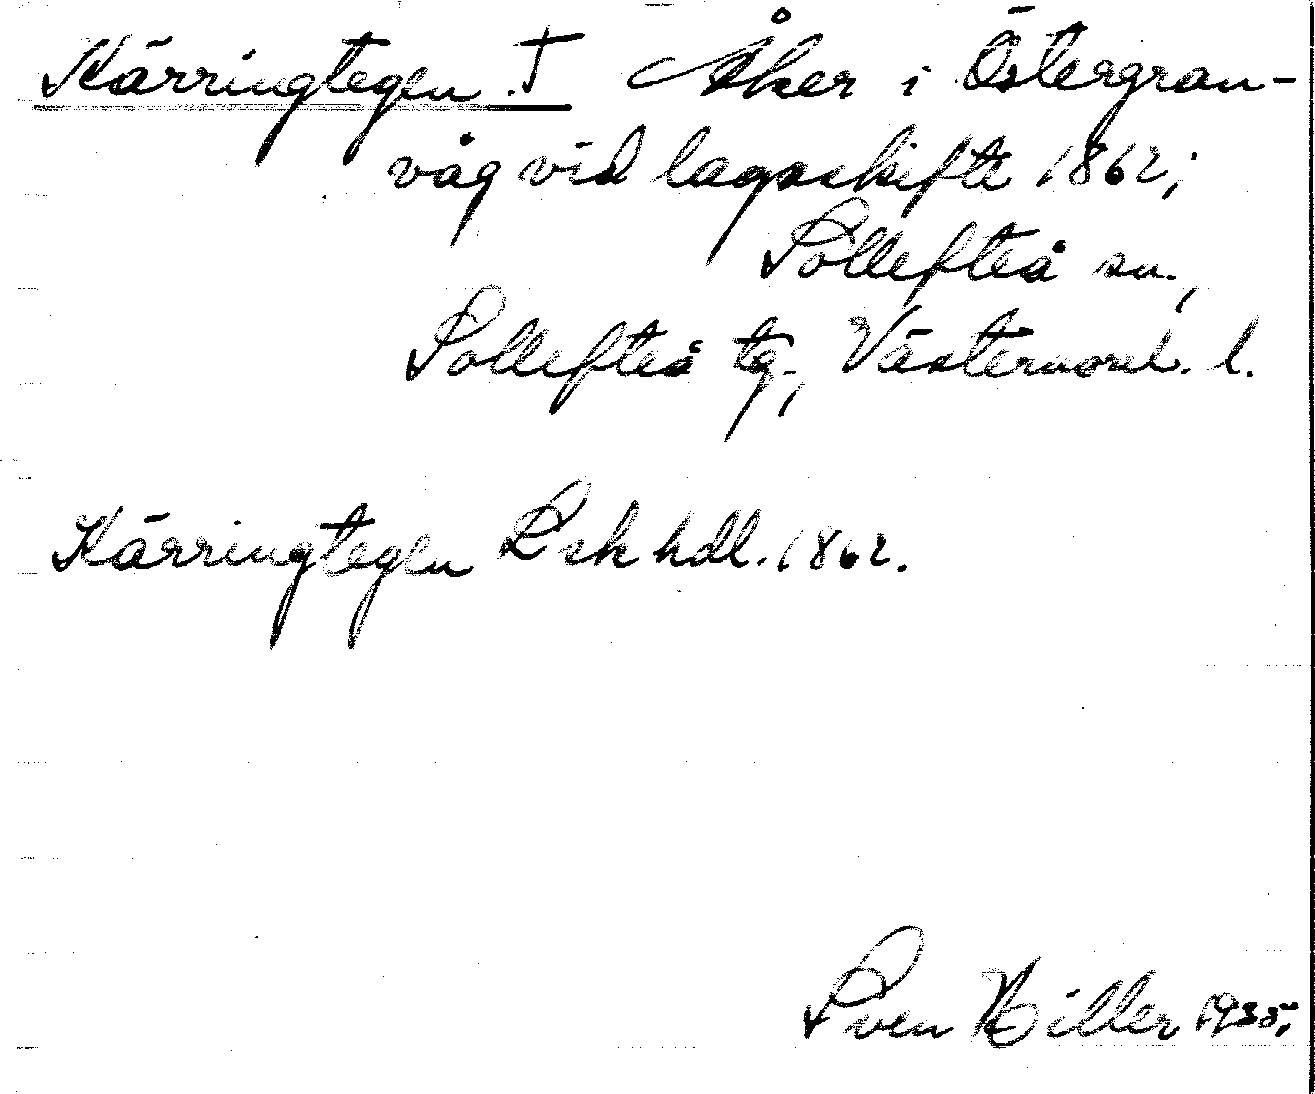 Kärringtegen. † Åker i Östergran-
våg vid lagaskifte 1862;
Sollefteå sn.,
Sollefteå tg., Västernorl. l.
Kärringtegen Lsk hdl. 1862.
Sven Hiller 1935.